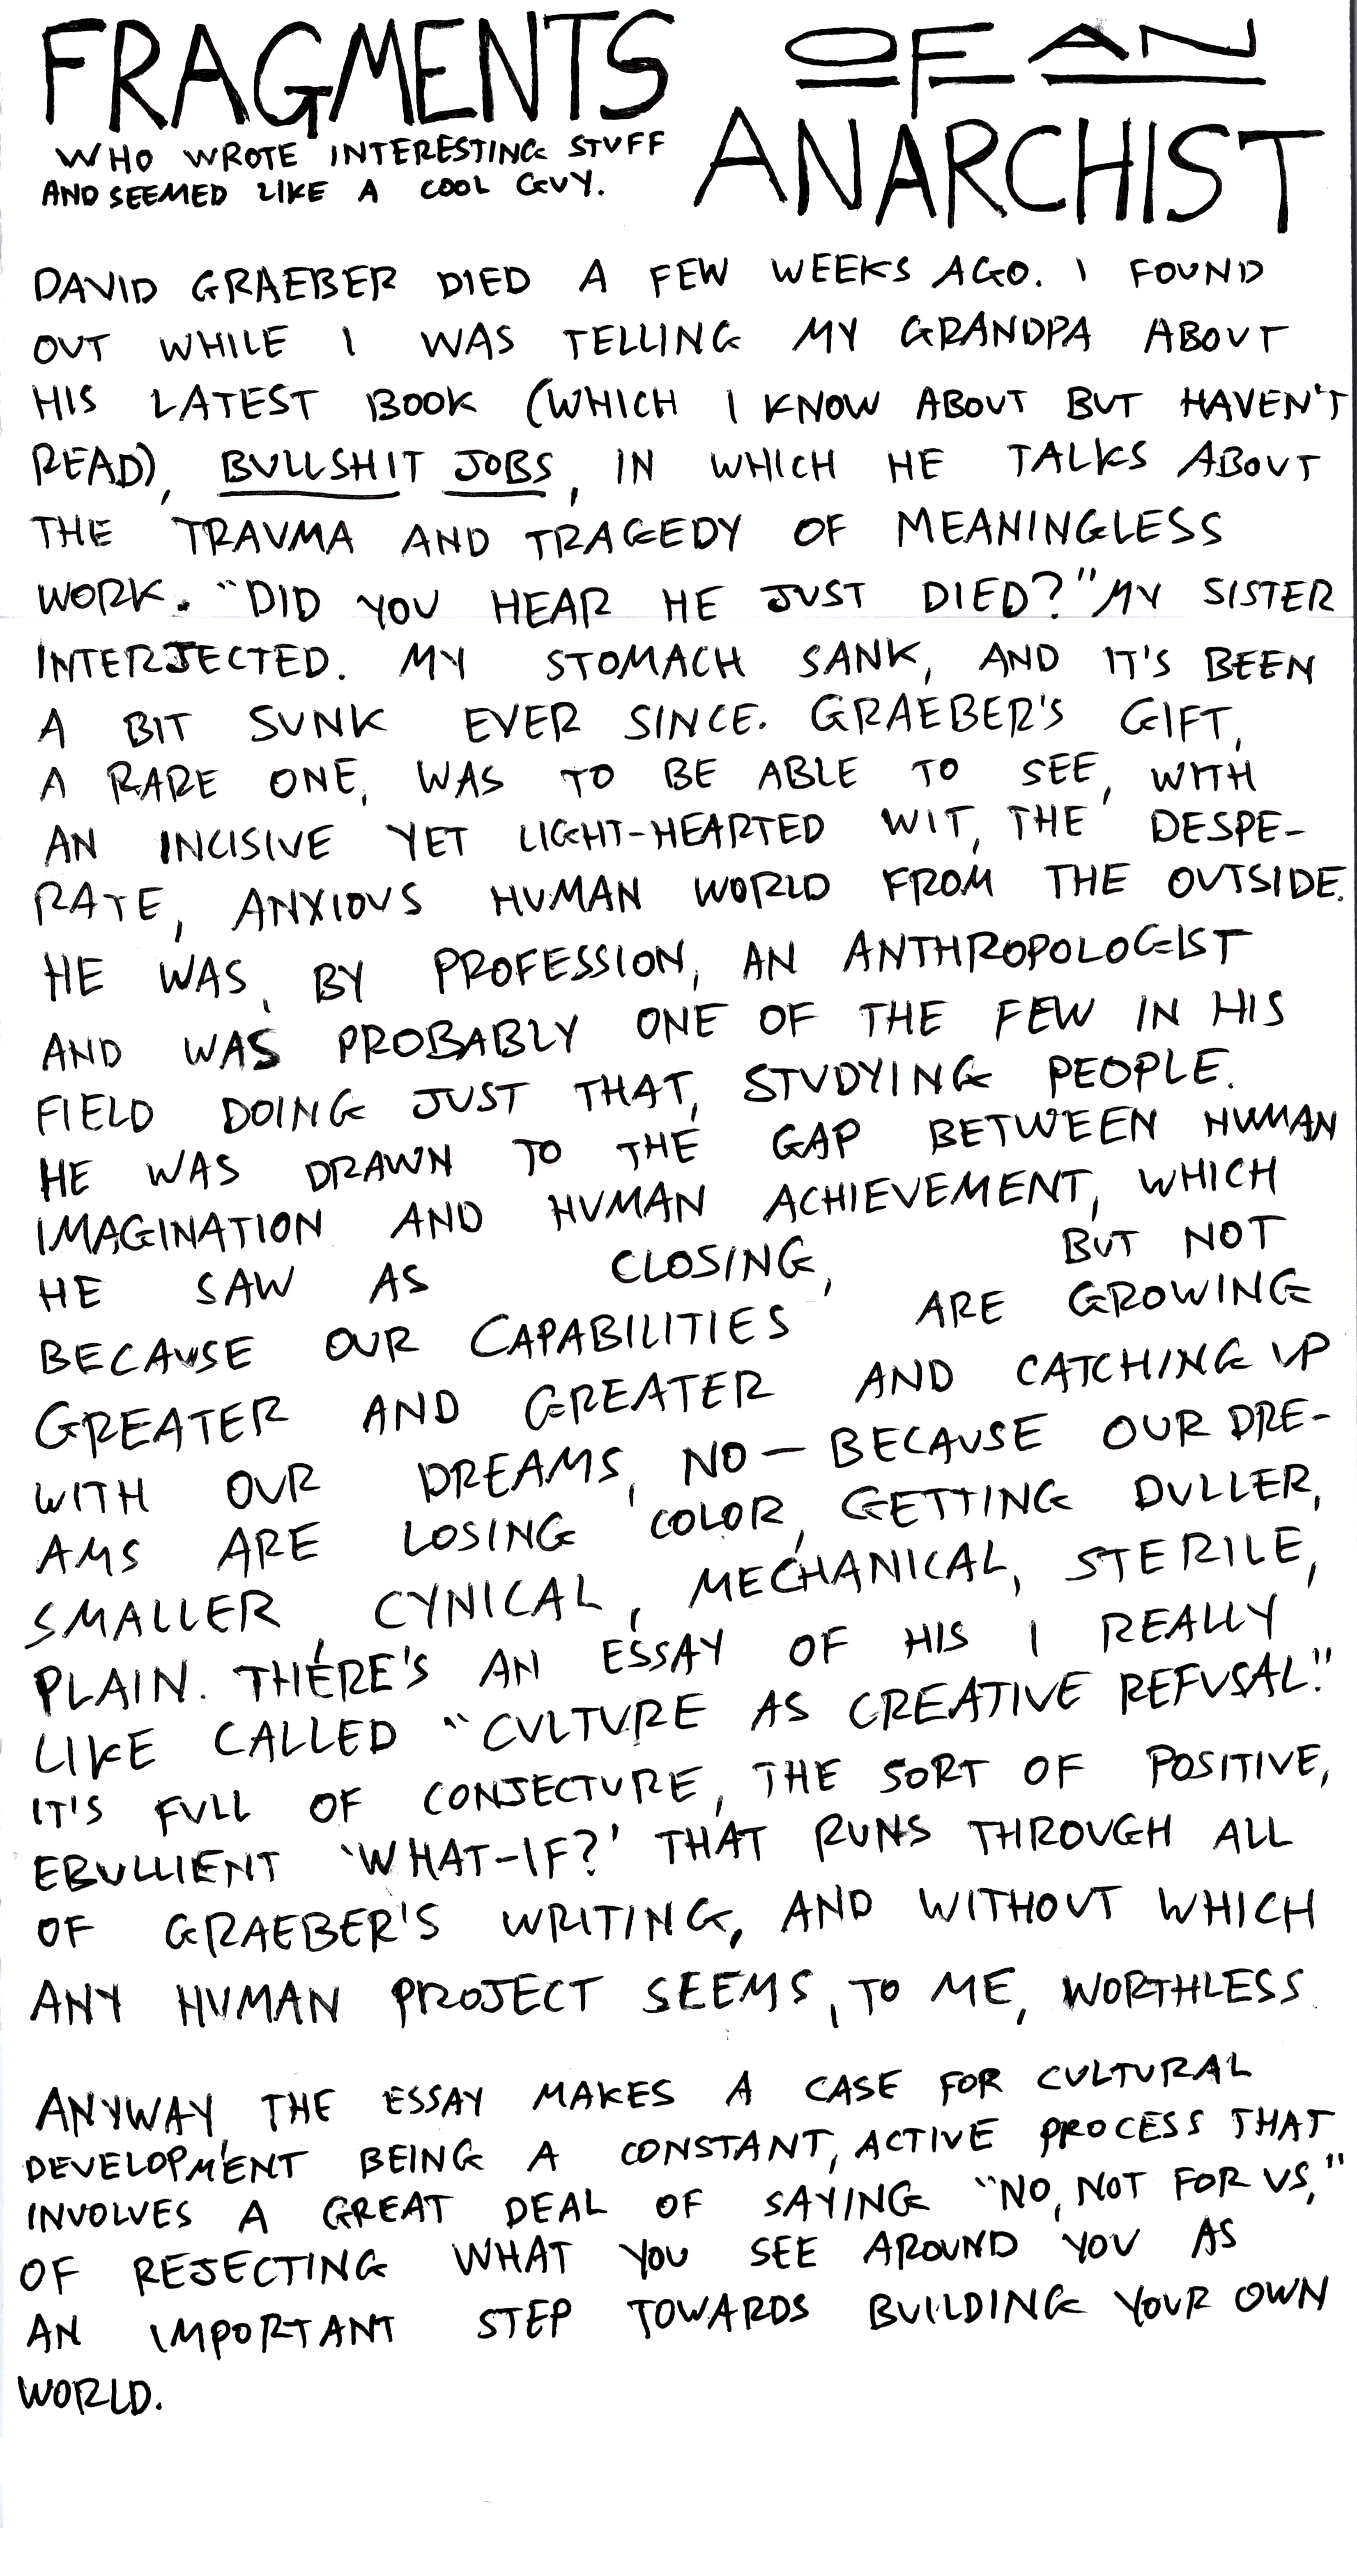 FRAGMENTS OF AN
ANARCHIST
WHO WROTE INTERESTING STUFF
AND SEEMED LIKE A COOL GUY.
DAVID GRAEBER DIED A FEW WEEKS AGO. I FOUND
OUT WHILE I WAS TELLING MY GRANDPA ABOUT
HIS LATEST BOOK (WHICH I KNOW ABOUT BUT HAVEN'T
READ), BULLSHIT JOBS, IN WHICH HE TALKS ABOUT
THE TRAUMA AND TRAGEDY OF MEANINGLESS
WORK. "DID YOU HEAR HE JUST DIED?" MY SISTER
INTERJECTED. MY STOMACH SANK, AND IT'S BEEN
A BIT SUNK EVER SINCE. GRAEBER'S GIFT,
A RARE ONE, WAS TO BE ABLE TO SEE, WITH
AN INCISIVE YET LIGHT-HEARTED WIT, THE DESPE-
RATE, ANXIOUS HUMAN WORLD FROM THE OUTSIDE.
HE WAS, BY PROFESSION, AN ANTHROPOLOGIST
AND WAS PROBABLY ONE OF THE FEW IN HIS
FIELD DOING JUST THAT, STUDYING PEOPLE.
HE WAS DRAWN TO THE GAP BETWEEN HUMAN
IMAGINATION AND HUMAN ACHIEVEMENT, WHICH
HE SAW AS CLOSING, BUT NOT
BECAUSE OUR CAPABILITIES ARE GROWING
GREATER AND GREATER AND CATCHING UP
WITH OUR DREAMS, NO — BECAUSE OUR DRE-
AMS ARE LOSING COLOR, GETTING DULLER,
SMALLER, CYNICAL, MECHANICAL, STERILE,
PLAIN. THERE'S AN ESSAY OF HIS I REALLY
LIKE CALLED "CULTURE AS CREATIVE REFUSAL."
IT'S FULL OF CONJECTURE, THE SORT OF POSITIVE,
EBULLIENT 'WHAT-IF?' THAT RUNS THROUGH ALL
OF GRAEBER'S WRITING, AND WITHOUT WHICH
ANY HUMAN PROJECT SEEMS, TO ME, WORTHLESS.
ANYWAY, THE ESSAY MAKES A CASE FOR CULTURAL
DEVELOPMENT BEING A CONSTANT, ACTIVE PROCESS THAT
INVOLVES A GREAT DEAL OF SAYING "NO, NOT FOR US,"
OF REJECTING WHAT YOU SEE AROUND YOU AS
AN IMPORTANT STEP TOWARDS BUILDING YOUR OWN
WORLD.